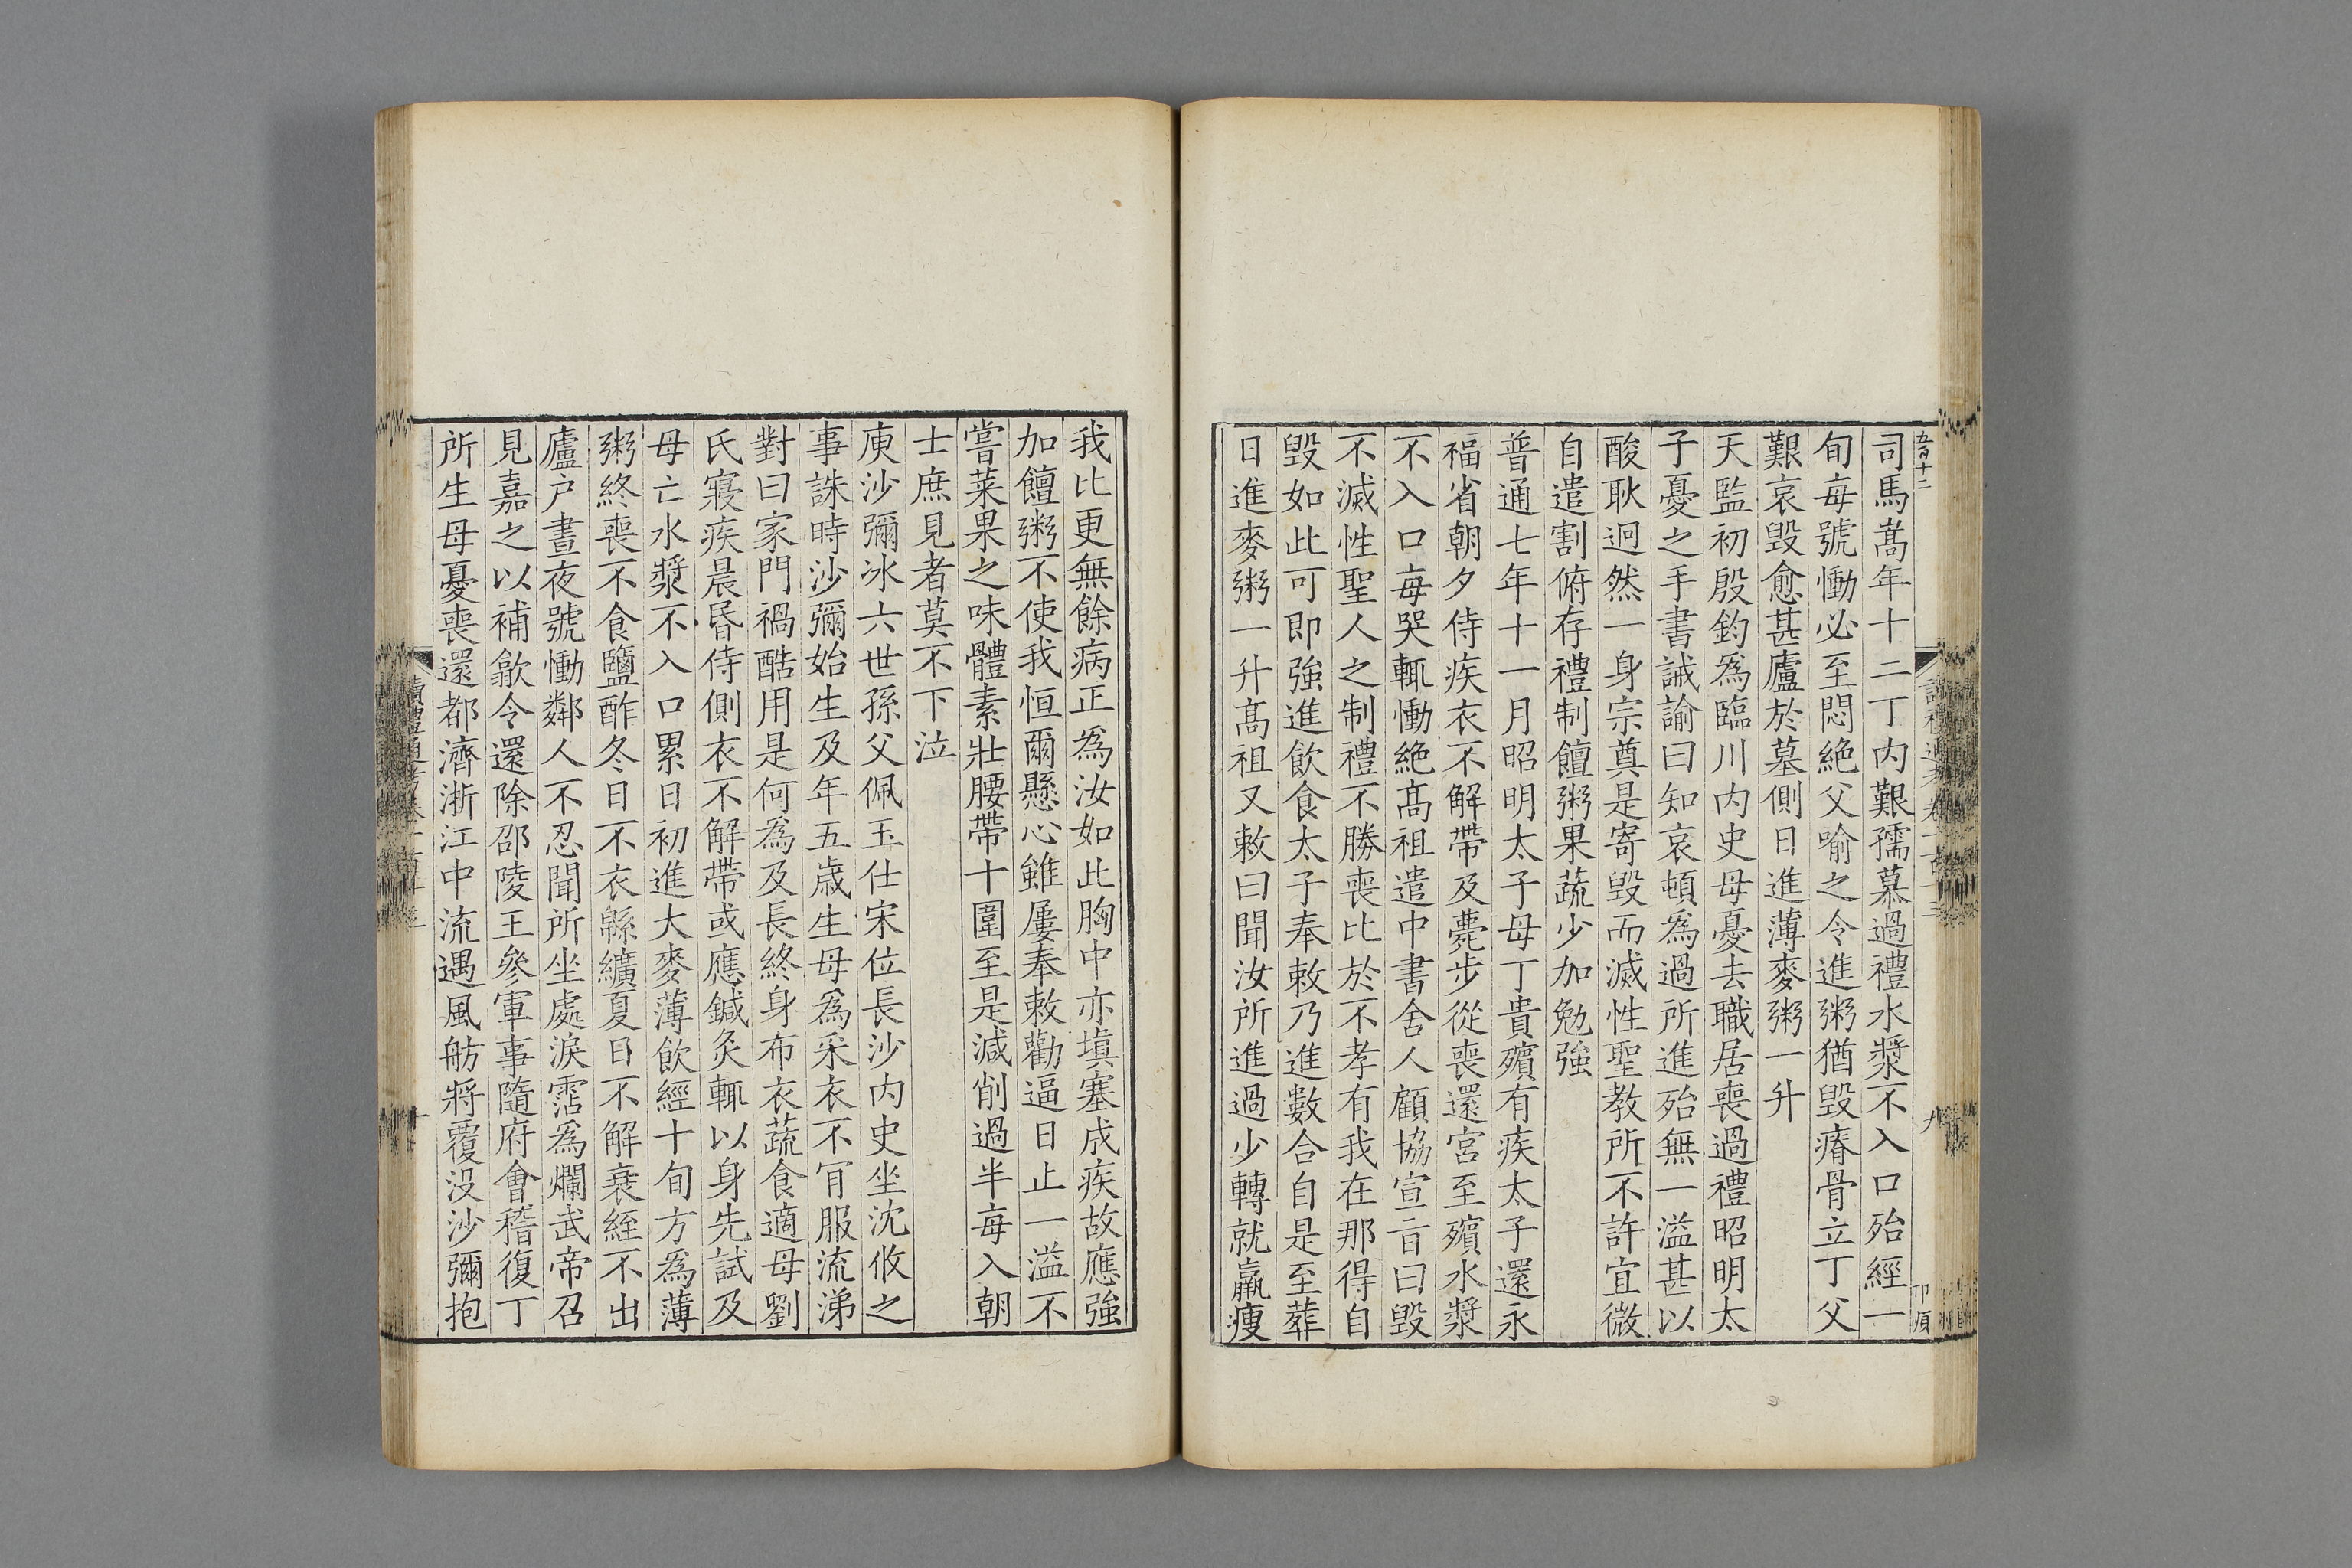 五百十二
司馬暠年十二丁内艱孺慕過禮水漿不入口殆經一
旬每號慟必至悶絶父喻之令進粥猶毀瘠骨立丁父
艱哀毀愈甚廬於墓側日進薄麥粥一升
天監初殷鈞爲臨川内史母憂去職居喪過禮昭明太
子憂之手書誡諭曰知哀頓爲過所進殆無一溢甚以
酸耿迥然一身宗奠是寄毀而滅性聖教所不許宜微
自遣割俯存禮制饘粥果蔬少加勉強
普通七年十一月昭明太子母丁貴嬪有疾太子還永
福省朝夕侍疾衣不解帶及薨步從喪還宮至殯水漿
不入口每哭輒慟絶高祖遣中書舍人顧協宣旨曰毀
不滅性聖人之制禮不勝喪比於不孝有我在那得自
毀如此可即強進飲食太子奉敕乃進數合自是至葬
日進麥粥一升高祖又敕曰聞汝所進過少轉就羸瘦
我比更無餘病正爲汝如此胸中亦塡塞成疾故應強
加饘粥不使我恒爾懸心雖屢奉敕勸逼日止一溢不
嘗菜果之味體素壯腰帶十圍至是減削過半每入朝
士庶見者莫不下泣
庾沙彌冰六世孫父佩玉仕宋位長沙内史坐沈攸之
事誅時沙彌始生及年五歲生母爲采衣不肯服流涕
對曰家門禍酷用是何爲及長終身布衣蔬食適母劉
氏寢疾晨昏侍側衣不解帶或應鍼灸輒以身先試及
母亡水漿不入口累日初進大麥薄飲經十旬方爲薄
粥終喪不食鹽酢冬日不衣緜纊夏日不解衰絰不出
廬户晝夜號慟鄰人不忍聞所坐處淚霑爲爛武帝召
見嘉之以補歙令還除邵陵王參軍事隨府會稽復丁
所生母憂喪還都濟浙江中流遇風舫將覆没沙彌抱
讀禮通考卷一百十三
十